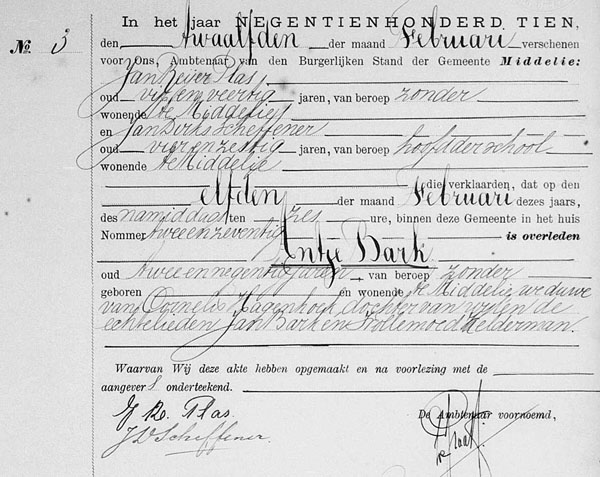 In het jaar NEGENTIENHONDERD TIEN,
No. 3
den twaalfden der maand Februari verschenen
voor Ons, Ambtenaar van den Burgerlijken Stand der Gemeente Middelie:
Jan Plas
oud vier en veertig jaren, van beroep zonder
wonende te Middelie,
en Jan Dirk Scheffener
oud vier en zestig jaren, van beroep hoofd der school
wonende te Middelie
die verklaarden, dat op den
elfden der maand Februari dezes jaars,
des namiddags ten zes ure, binnen deze Gemeente in het huis
Nommer twee en zeventig is overleden
Antje Bark
oud twee en negentig jaren, van beroep zonder
geboren en wonende te Middelie, weduwe
van Cornelis Hagenhoek, dochter van wijlen de
echtelieden Jan Bark en Stollemoed Kelderman.
Waarvan Wij deze akte hebben opgemaakt en na voorlezing met de
aangevers onderteekend.
De Ambtenaar voornoemd,
Plas.
J D Scheffener.